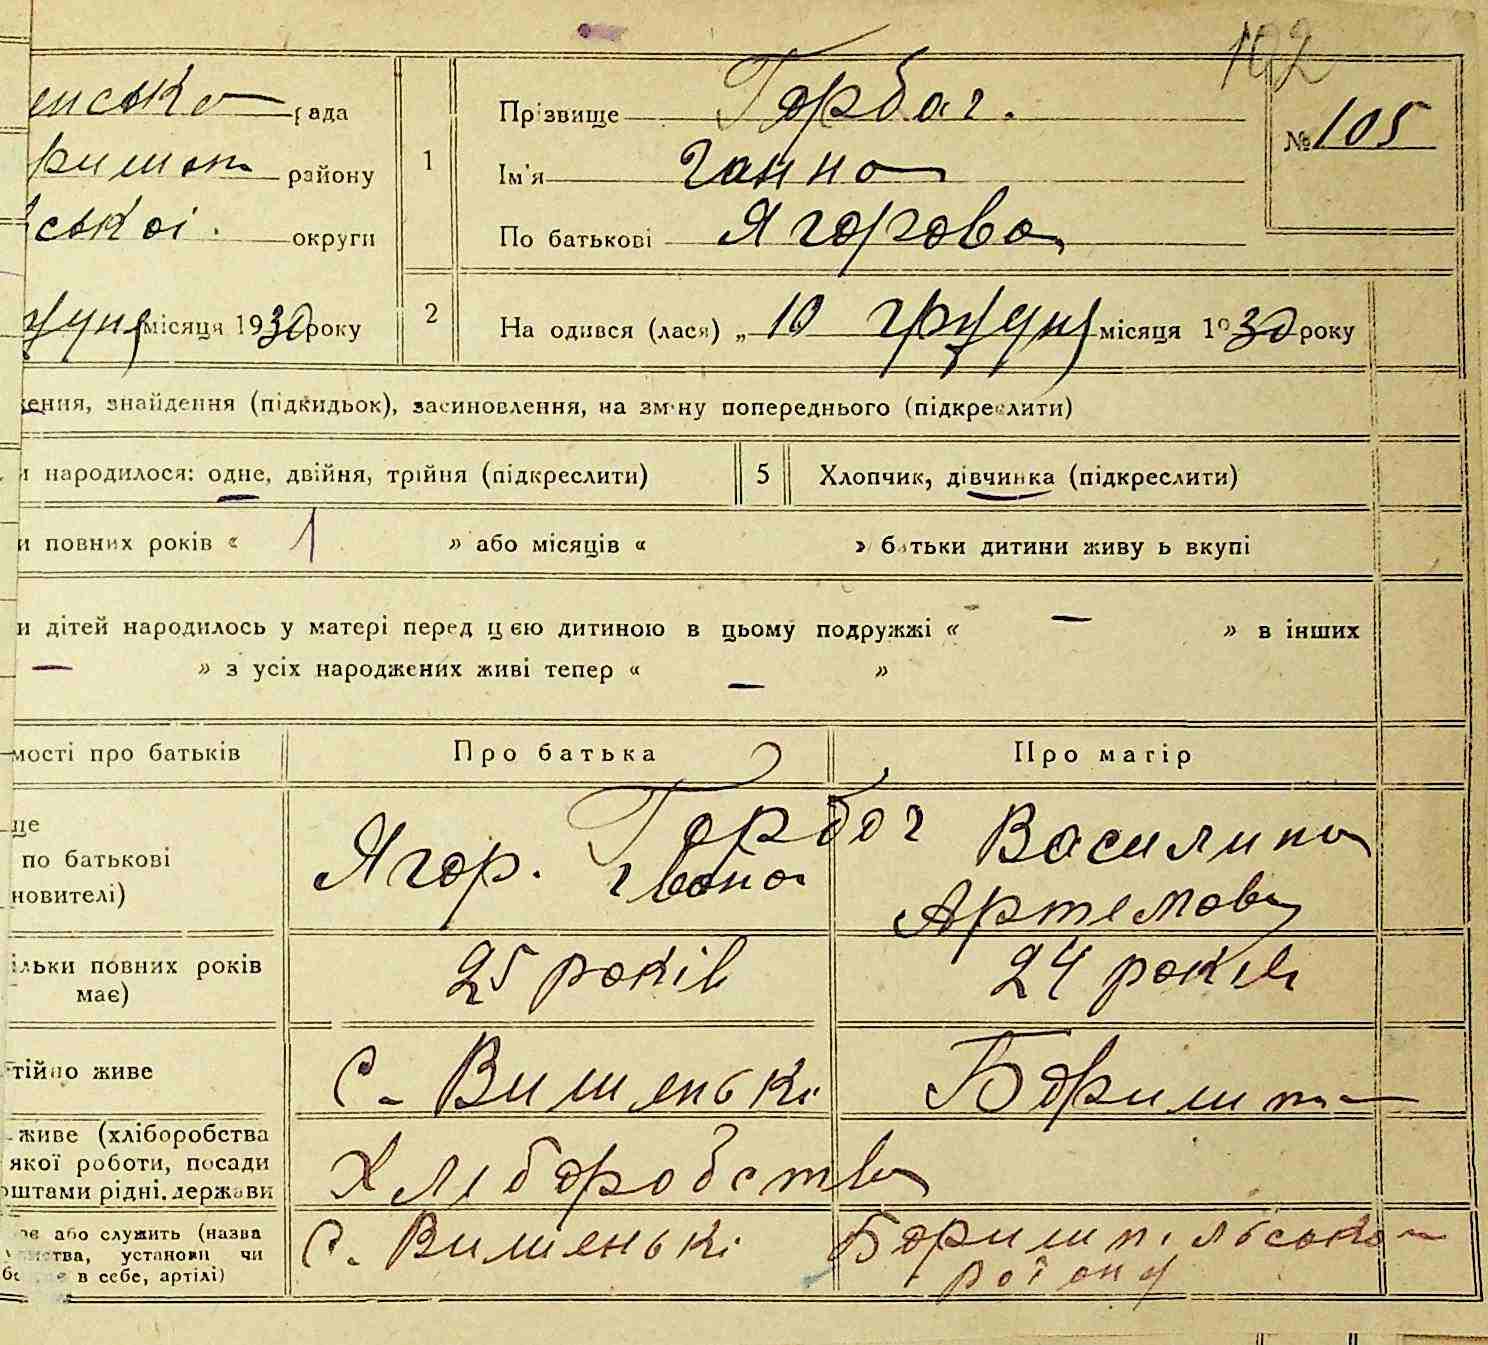 102
енсько рада
Прізвище Горбач.
№ 105
1
району
Ім'я Ганна
ської. округи
По батькові Ягорова
місяця 1930 року
2
На одився (лася) „ 10 грудня місяця 1930 року
ення, знайдення (підкидьок), засиновлення, на зміну попереднього (підкреслити)
и народилося: одне, двійня, трійня (підкреслити)
5
Хлопчик, дівчинка (підкреслити)
и повних років « 1 » або місяців « » батьки дитини живу ь вкупі
и дітей народилось у матері перед цією дитиною в цьому подружжі « — » в інших
— » з усіх народжених живі тепер « — »
мості про батьків
Про батька
Про матір
ще
по батькові
новителі)
Горбач
Ягор. Івано
Василина
Артемова
ільки повних років
має)
25 років
24 років
тійно живе
с. Вишенькі
Борипил
живе (хліборобства
якої роботи, посади
оштами рідні, держави
Хліборобства
або служить (назва
тва, установи чи
в себе, артілі)
с. Вишенькі Борипільсько
району